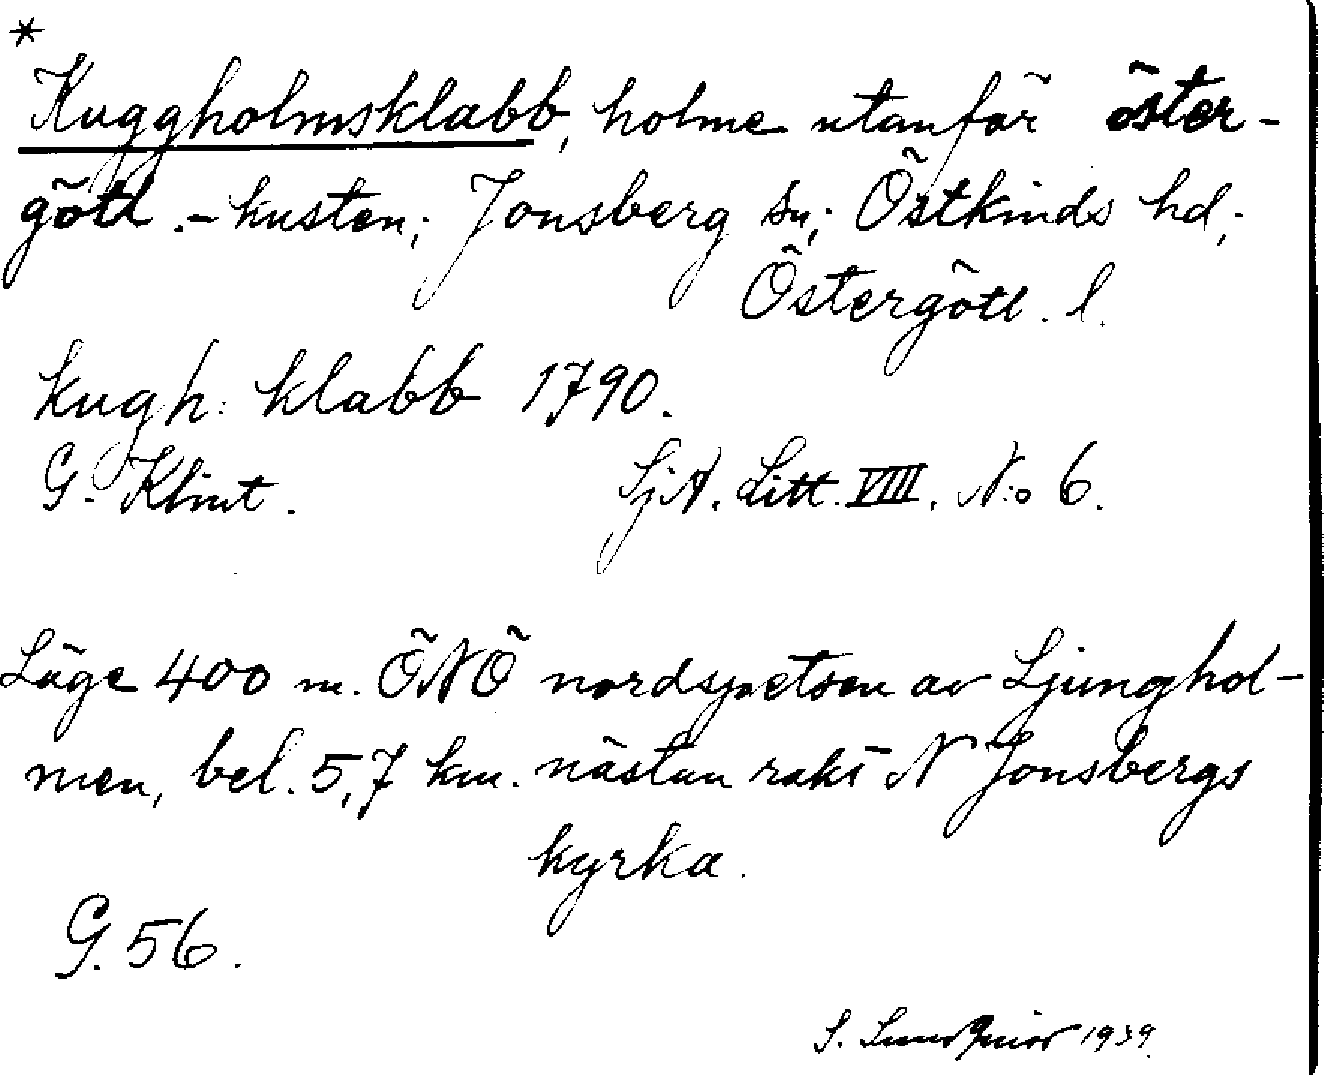 *
Kuggholmsklabb, holme utanför öster-
götl.-kusten; Jonsberg sn; Östkinds hd;
Östergötl. l.
kugh: klabb 1790.
G. Klint. SjA. Litt. VIII. N:o 6.
Läge 400 m. ÖNÖ nordspetsen av Ljunghol-
men, bel. 5,7 km. nästan rakt N Jonsbergs
kyrka.
G. 56.
S. 1939.